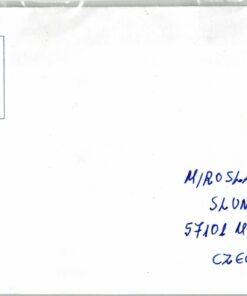 MIROSLA
SLUN
57101 M
CZE